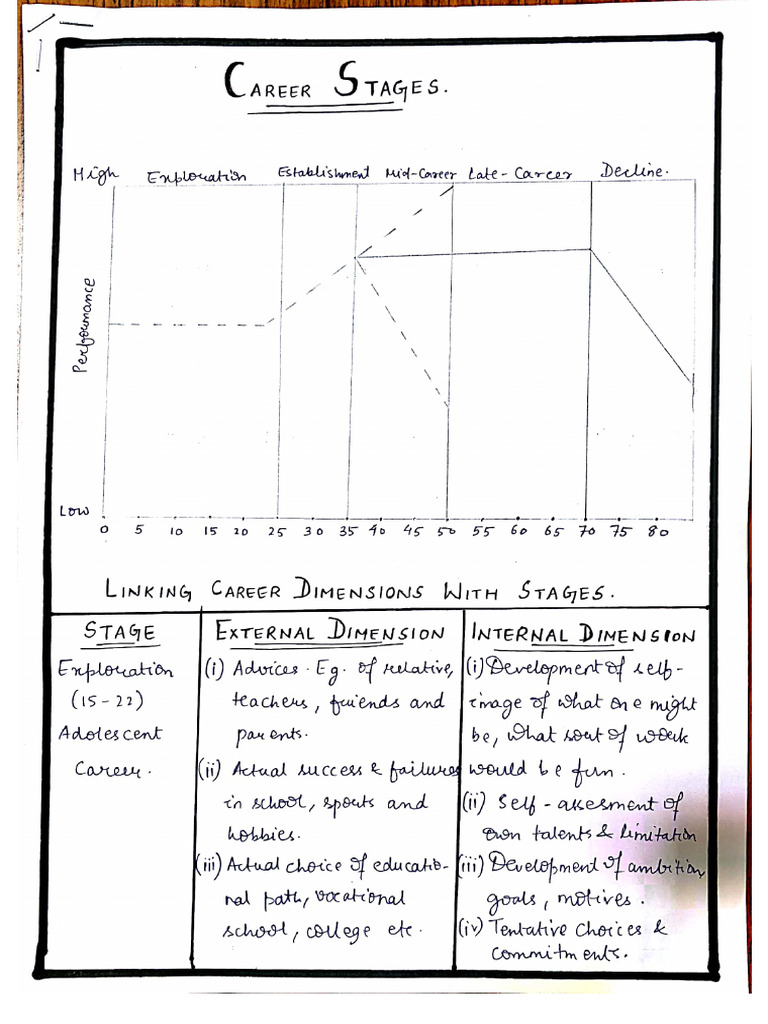 CAREER STAGES.
High Exploration Establishment Mid-Career Late-Career Decline.
Performance
Low
0 5 10 15 20 25 30 35 40 45 50 55 60 65 70 75 80
LINKING CAREER DIMENSIONS WITH STAGES.
STAGE
Exploration
(15-22)
Adolescent
Career.
EXTERNAL DIMENSION
(i) Advices. Eg. of relative,
teachers, friends and
parents.
(ii) Actual success & failures
in school, sports and
hobbies.
(iii) Actual choice of educatio-
nal path, vocational
school, college etc.
INTERNAL DIMENSION
(i) Development of self-
image of what one might
be, what sort of work
would be fun.
(ii) Self-assesment of
own talents & limitation
(iii) Development of ambition,
goals, motives.
(iv) Tentative Choices &
commitments.